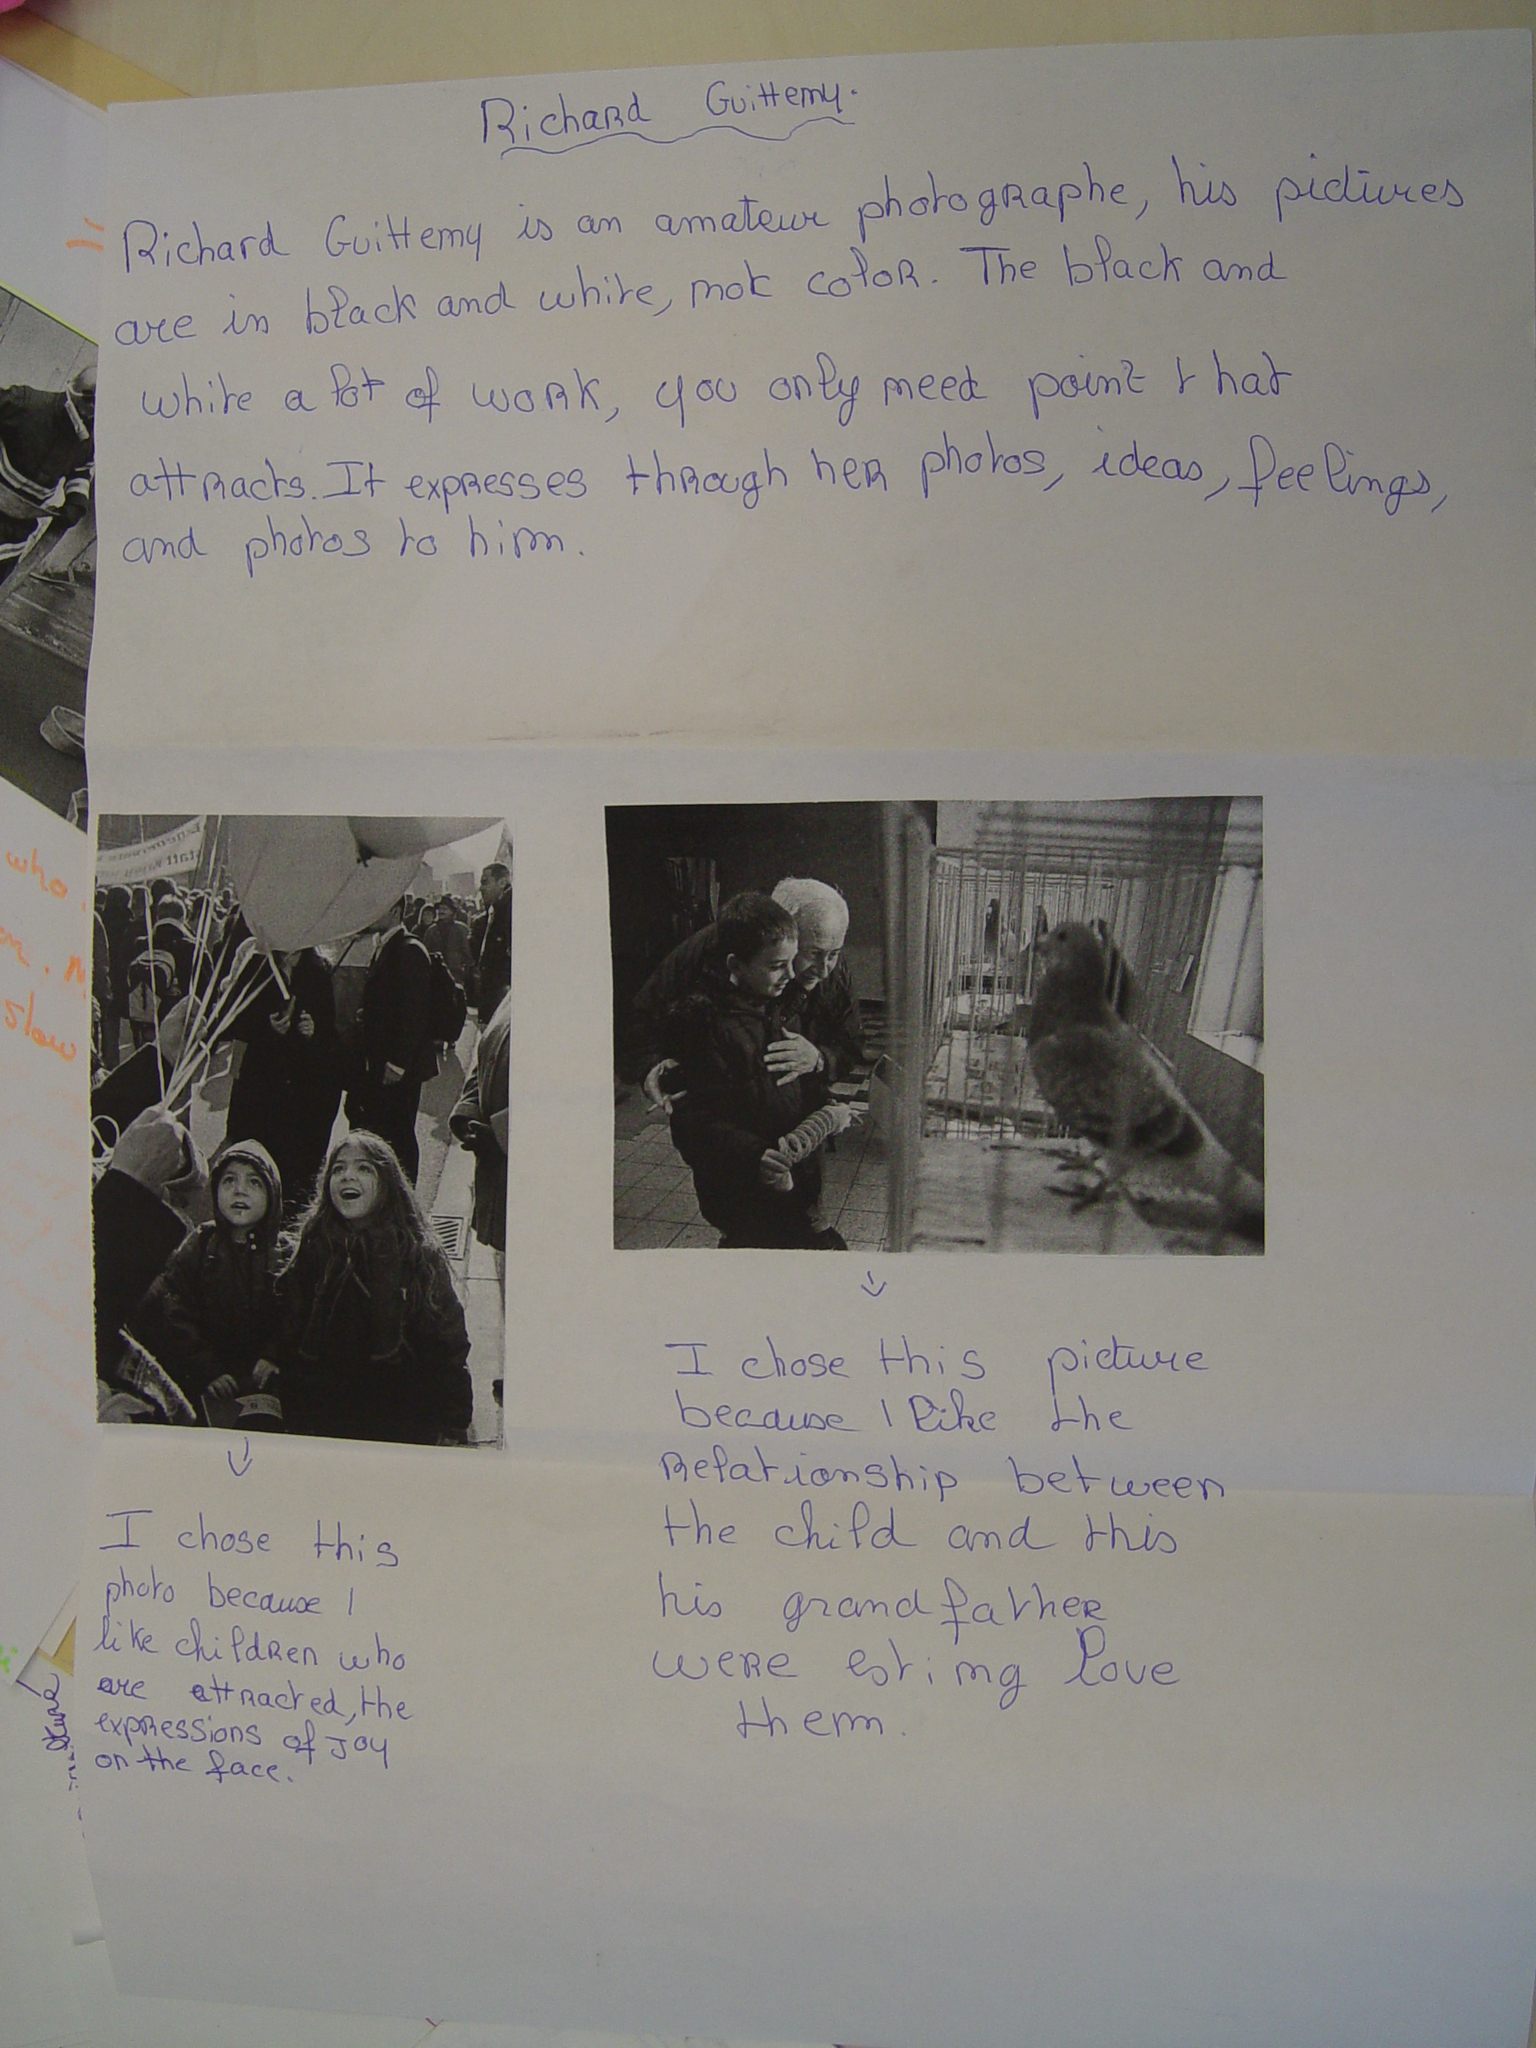 Richard Guittemy.
Richard Guittemy is an amateur photographe, his pictures
are in black and white, not color. The black and
white a lot of work, you only need point that
attracts. It expresses through her photos, ideas, feelings,
and photos to him.
I chose this picture
because I like the
relationship between
the child and this
his grandfather
were esting love
them.
I chose this
photo because I
like children who
are attracted, the
expressions of joy
on the face.
who
slow